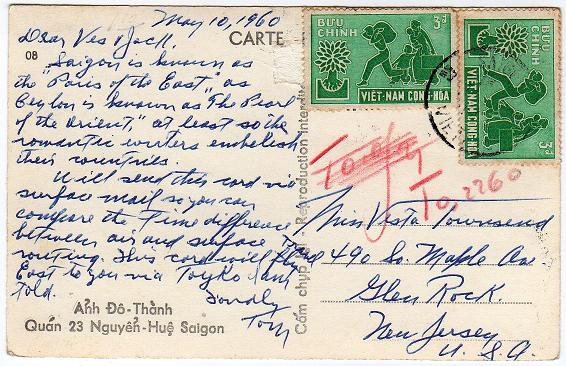 May 10, 1960
CARTE
08
Dear Ves & Jack.
Saigon is known as
the "Paris of the East," as
Ceylon is known as The Pearl
of the Orient," at least so the
romantic writers embelesh
their countries.
Will send this card via
surface mail so you can
compare the time difference
between air and surface
routing. This card will fly
East to you via Toyko I am
told.
Fondly
Tom
Ảnh Đô-Thành
Quán 23 Nguyễn-Huệ Saigon
Cấm chụp lại - Reproduction interdite
BƯU CHÍNH
3đ
VIỆT-NAM CỘNG-HÒA
BƯU CHÍNH
3đ
VIỆT-NAM CỘNG-HÒA
To, 2260
Miss Vesta Townsend
490 So. Maple Ave
Glen Rock.
New Jersey
U.S.A.